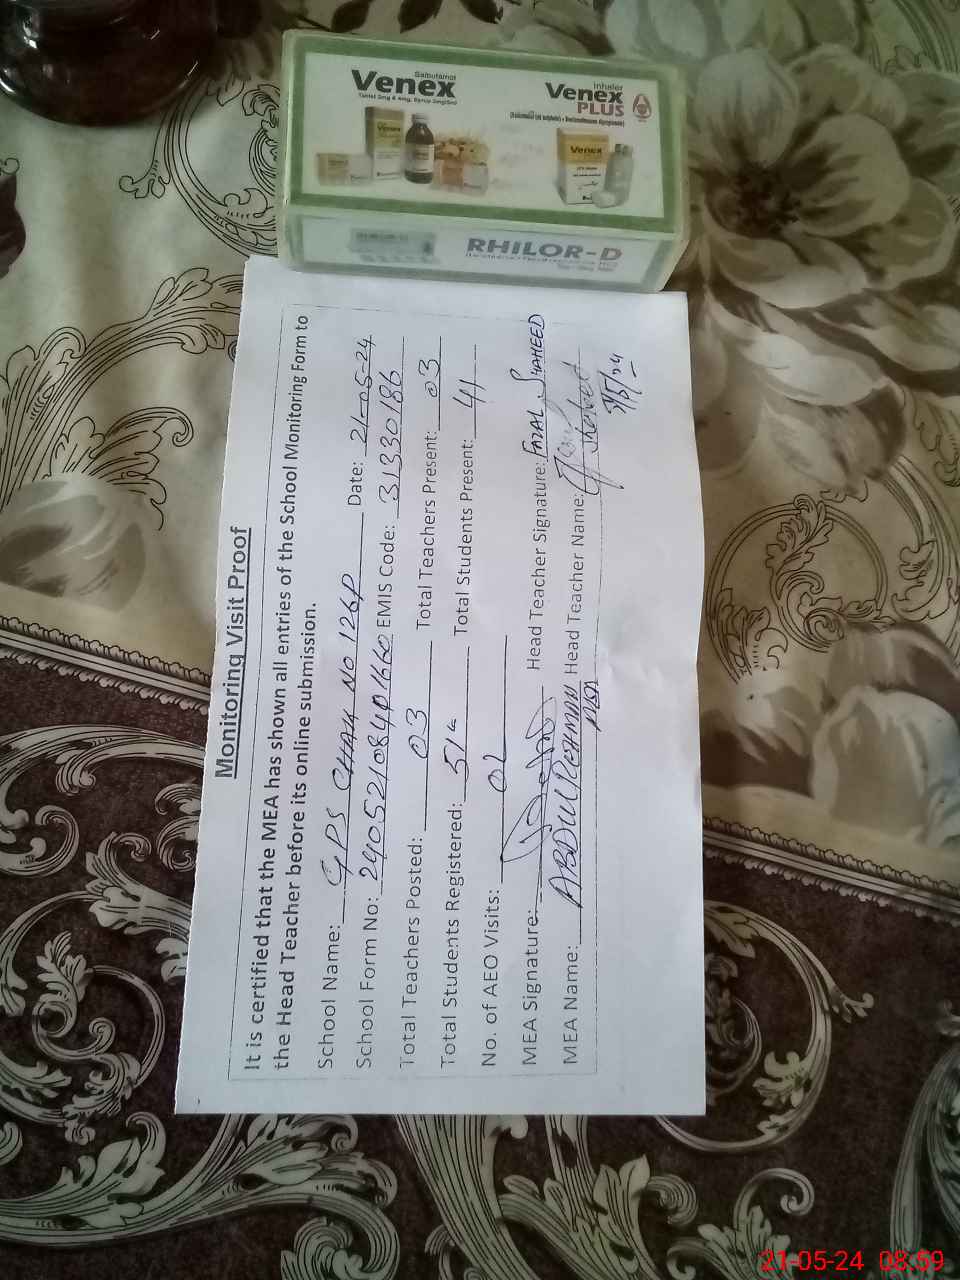 Salbutamol
Venex
Tablet 2mg & 4mg, Syrup 2mg/5ml
Inhaler
Venex
PLUS
Venex
Venex
RHILOR-D
Monitoring Visit Proof
It is certified that the MEA has shown all entries of the School Monitoring Form to
the Head Teacher before its online submission.
School Name: GPS CHAK NO 126P Date: 21-05-24
School Form No: EMIS Code: 31330186
Total Teachers Posted: 03 Total Teachers Present: 03
Total Students Registered: 51 Total Students Present: 41
No. of AEO Visits: 02
MEA Signature: Head Teacher Signature: FAZAL SHAHEED
MEA Name: ABDUL REHMAN Head Teacher Name:
21-05-24 08:59